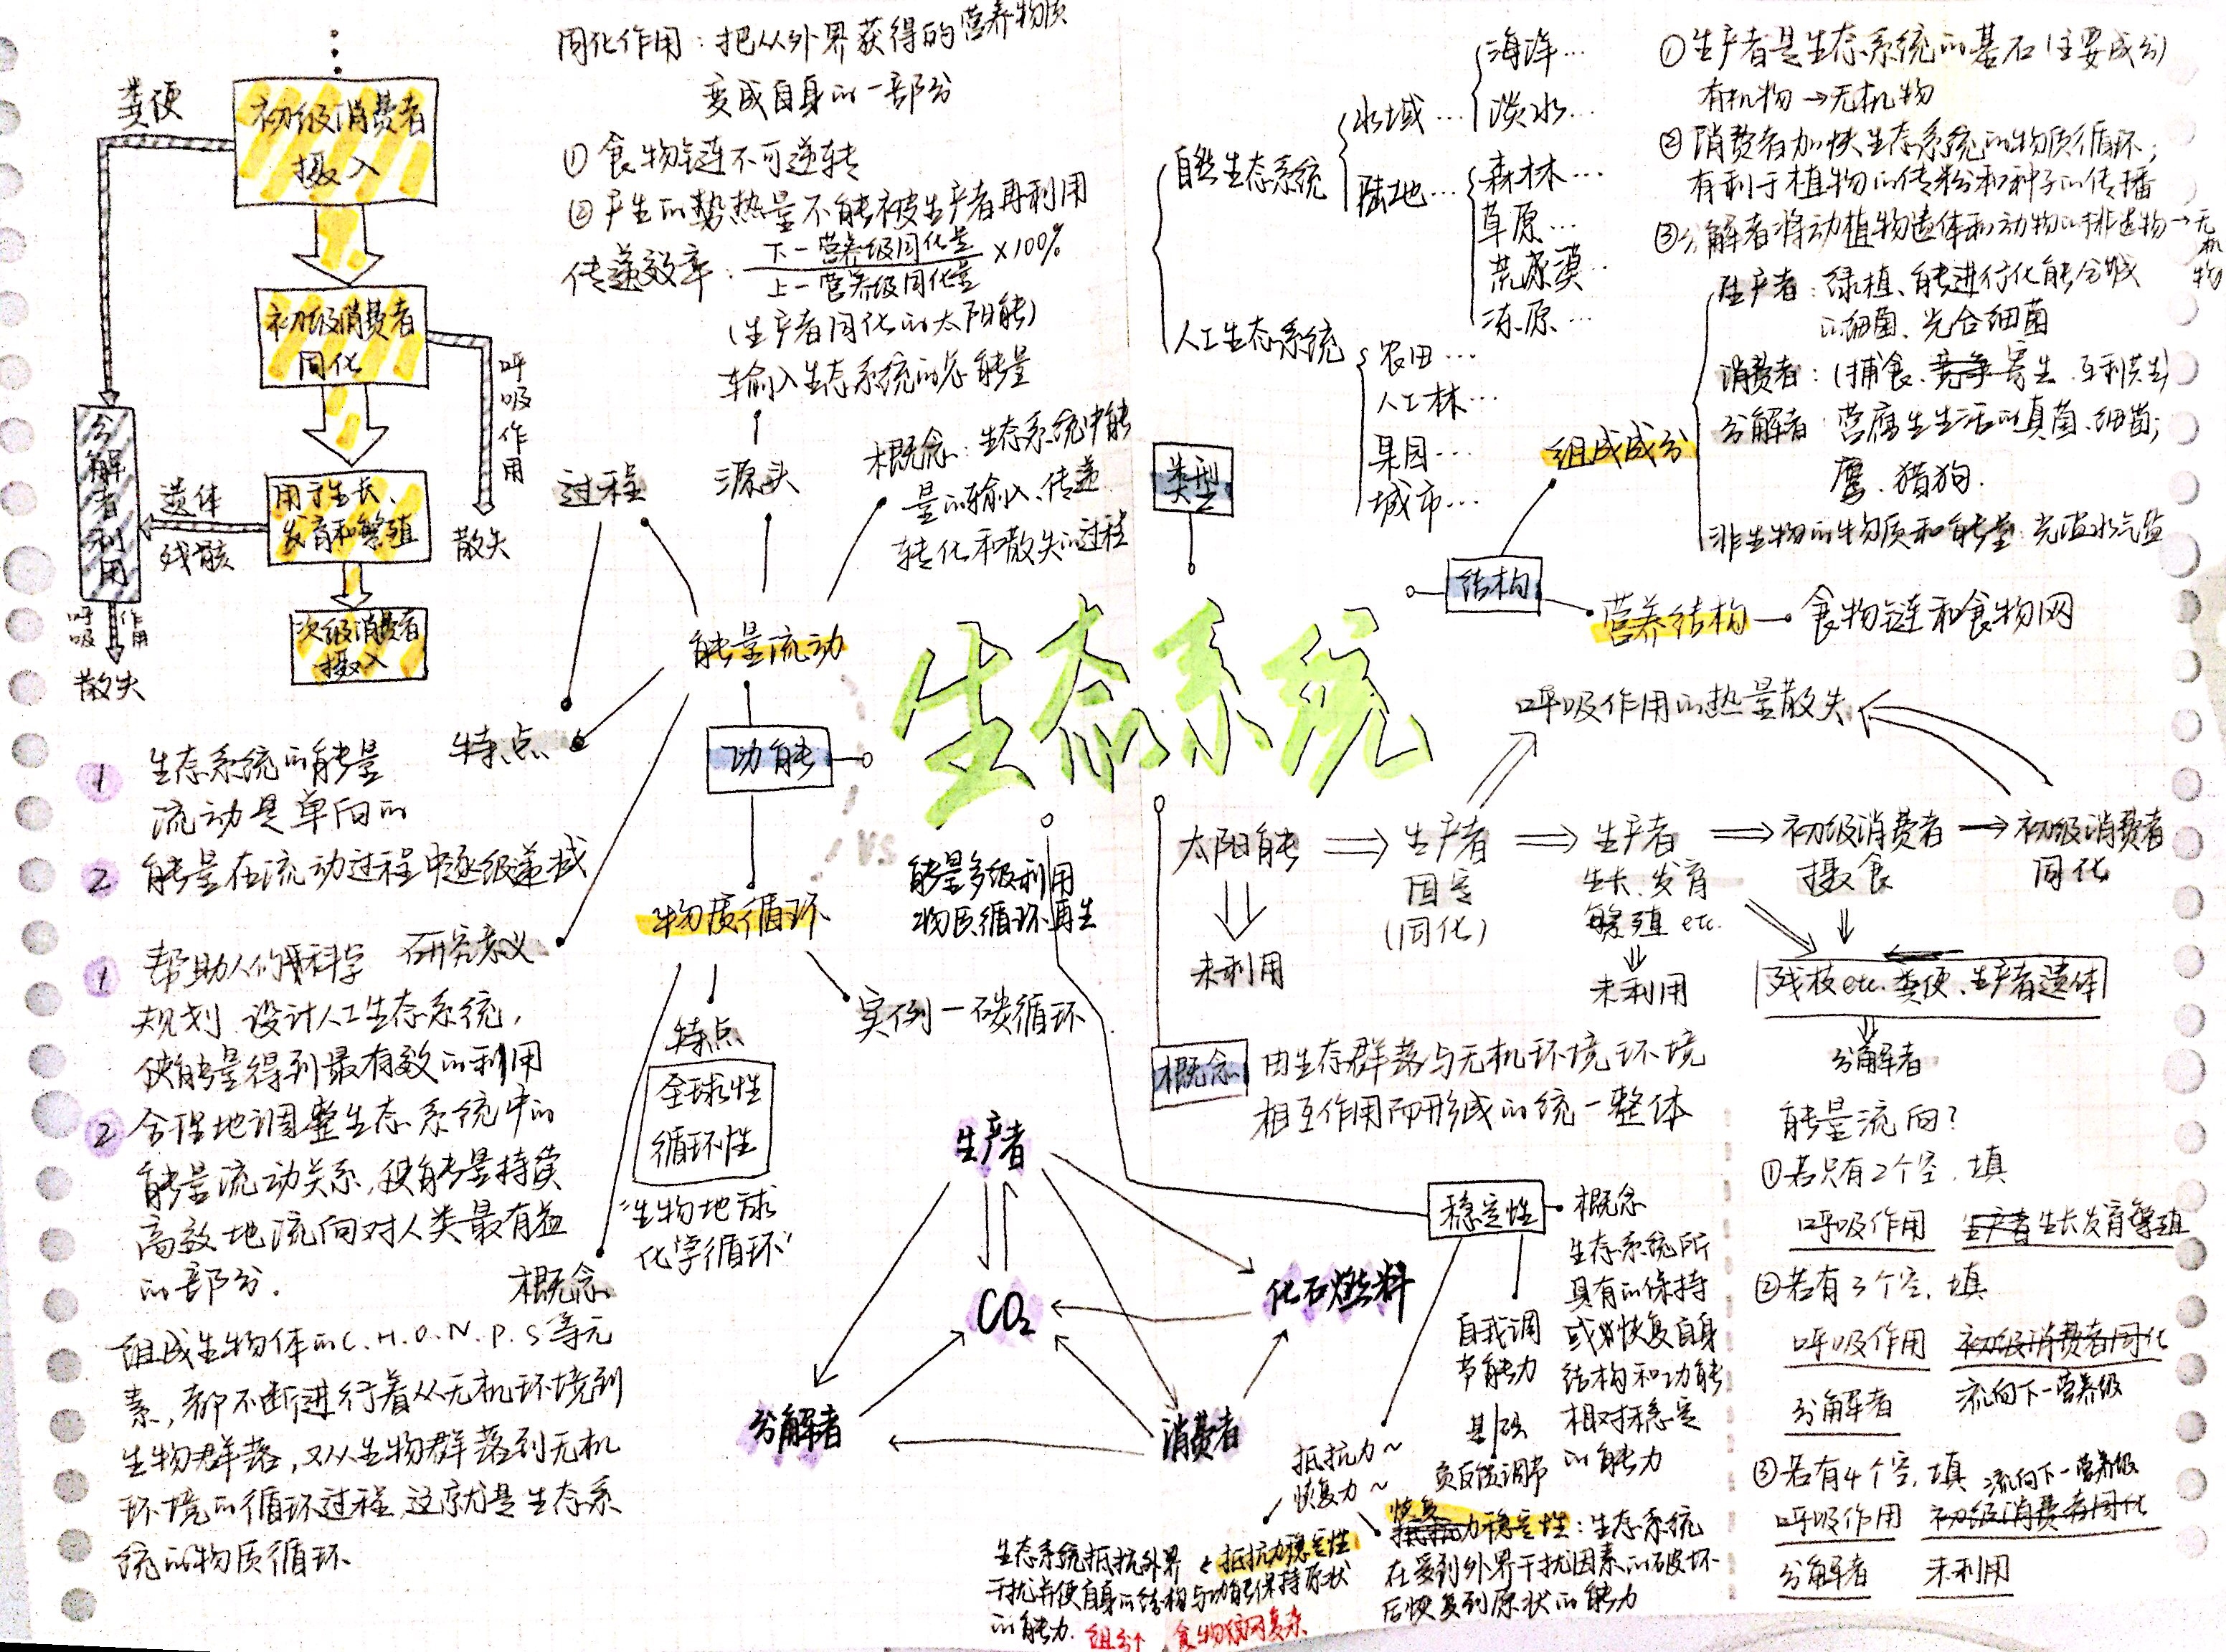 粪便
初级消费者
摄入
初级消费者
同化
呼吸作用
散失
分解者利用
遗体
残骸
用于生长、
发育和繁殖
次级消费者
摄入
呼吸 作用
散失
同化作用：把从外界获得的营养物质
变成自身的一部分
① 食物链不可逆转
② 产生的势热量不能被生产者再利用
传递效率：下一营养级同化量
上一营养级同化量 ×100%
(生产者同化的太阳能)
输入生态系统的总能量
过程
源头
概念：生态系统中能
量的输入、传递
转化和散失的过程
能量流动
特点
1 生态系统的能量
流动是单向的
2 能量在流动过程中逐级递减
研究意义
1 帮助人们科学
规划、设计人工生态系统，
使能量得到最有效的利用
2 合理地调整生态系统中的
能量流动关系，使能量持续
高效地流向对人类最有益
的部分.
功能
VS
能量多级利用
物质循环再生
物质循环
特点
全球性
循环性
"生物地球
化学循环"
实例—碳循环
概念
组成生物体的C.H.O.N.P.S等元
素，都不断进行着从无机环境到
生物群落，又从生物群落到无机
环境的循环过程，这就是生态系
统的物质循环.
生态系统
类型
自然生态系统
水域…
海洋…
淡水…
陆地…
森林…
草原…
荒漠…
冻原…
人工生态系统
农田…
人工林…
果园…
城市…
① 生产者是生态系统的基石(主要成分)
有机物→无机物
② 消费者加快生态系统的物质循环；
有利于植物的传粉和种子的传播
③ 分解者将动植物遗体和动物的排遗物→无机物
结构
组成成分
生产者：绿植、能进行化能合成
的细菌、光合细菌
消费者：(捕食、竞争 寄生、互利共生)
分解者：营腐生生活的真菌、细菌；
鹰、猎狗.
非生物的物质和能量：光温水气盐
营养结构—食物链和食物网
呼吸作用的热量散失
太阳能
未利用
生产者
固定
(同化)
生产者
生长、发育
繁殖 etc.
未利用
初级消费者
摄食
初级消费者
同化
残枝etc.粪便、生产者遗体
分解者
概念
由生态群落与无机环境环境
相互作用而形成的统一整体
生产者
CO₂
化石燃料
分解者
消费者
稳定性
概念
生态系统所
具有的保持
或恢复自身
结构和功能
相对稳定
的能力
自我调
节能力
基础
负反馈调节
抵抗力~
恢复力~
抵抗力稳定性
生态系统抵抗外界
干扰并使自身的结构与功能保持原状
的能力.
组分↑ 食物网复杂
恢复
抵抗力稳定性：生态系统
在受到外界干扰因素的破坏
后恢复到原状的能力
能量流向？
① 若只有2个空，填
呼吸作用 生产者生长发育繁殖
② 若有3个空，填
呼吸作用 初级消费者同化
分解者 流向下一营养级
③ 若有4个空，填 流向下一营养级
呼吸作用 初级消费者同化
分解者 未利用